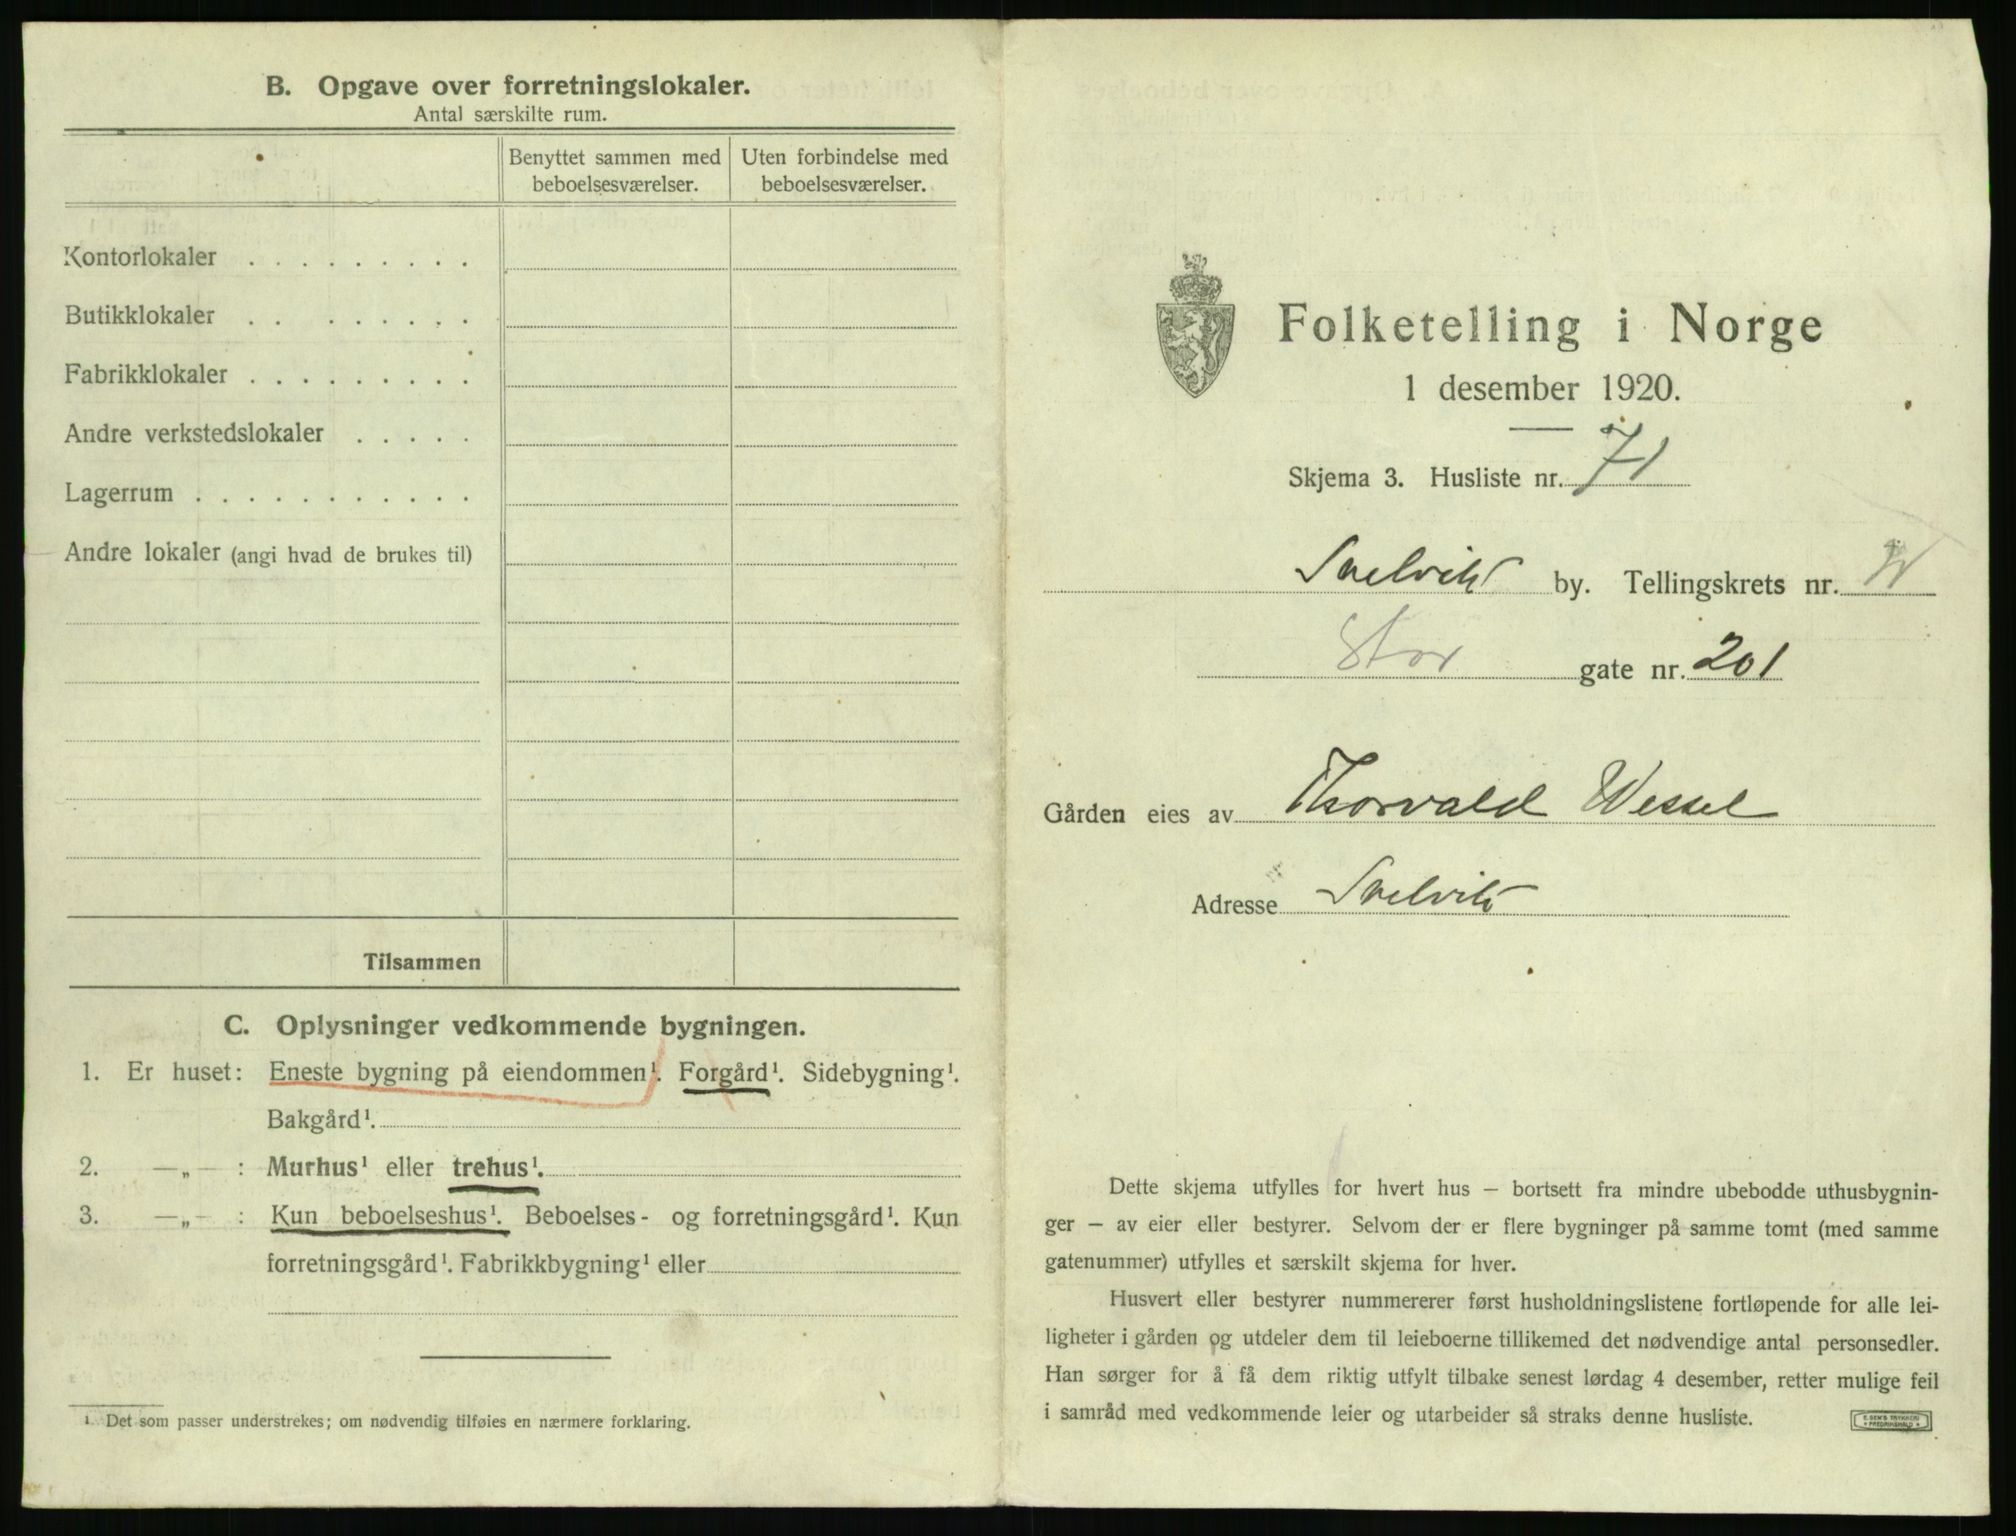 B. Opgave over forretningslokaler.
Antal særskilte rum.
Benyttet sammen med beboelsesværelser.
Uten forbindelse med beboelsesværelser.
Kontorlokaler . . . . . . . . .
Butikklokaler . . . . . . . .
Fabrikklokaler . . . . . . . . .
Andre verkstedslokaler . . . . .
Lagerrum . . . . . . . . . . .
Andre lokaler (angi hvad de brukes til)
Tilsammen
C. Oplysninger vedkommende bygningen.
1. Er huset: Eneste bygning på eiendommen¹. Forgård¹. Sidebygning¹.
Bakgård¹.
2. —„— : Murhus¹ eller trehus¹.
3. —„— : Kun beboelseshus¹. Beboelses- og forretningsgård¹. Kun
forretningsgård¹. Fabrikkbygning¹ eller
¹. Det som passer understrekes; om nødvendig tilføies en nærmere forklaring.
Folketelling i Norge
1 desember 1920.
Skjema 3. Husliste nr. 71
Svelvik by. Tellingskrets nr.
Stor gate nr. 201
Gården eies av Thorvald Wessel
Adresse Svelvik
Dette skjema utfylles for hvert hus – bortsett fra mindre ubebodde uthusbygnin-
ger – av eier eller bestyrer. Selvom der er flere bygninger på samme tomt (med samme
gatenummer) utfylles et særskilt skjema for hver.
Husvert eller bestyrer nummererer først husholdningslistene fortløpende for alle lei-
ligheter i gården og utdeler dem til leieboerne tillikemed det nødvendige antal personsedler.
Han sørger for å få dem riktig utfylt tilbake senest lørdag 4 desember, retter mulige feil
i samråd med vedkommende leier og utarbeider så straks denne husliste.
E. SEM'S TRYKKERI
FREDRIKSHALD